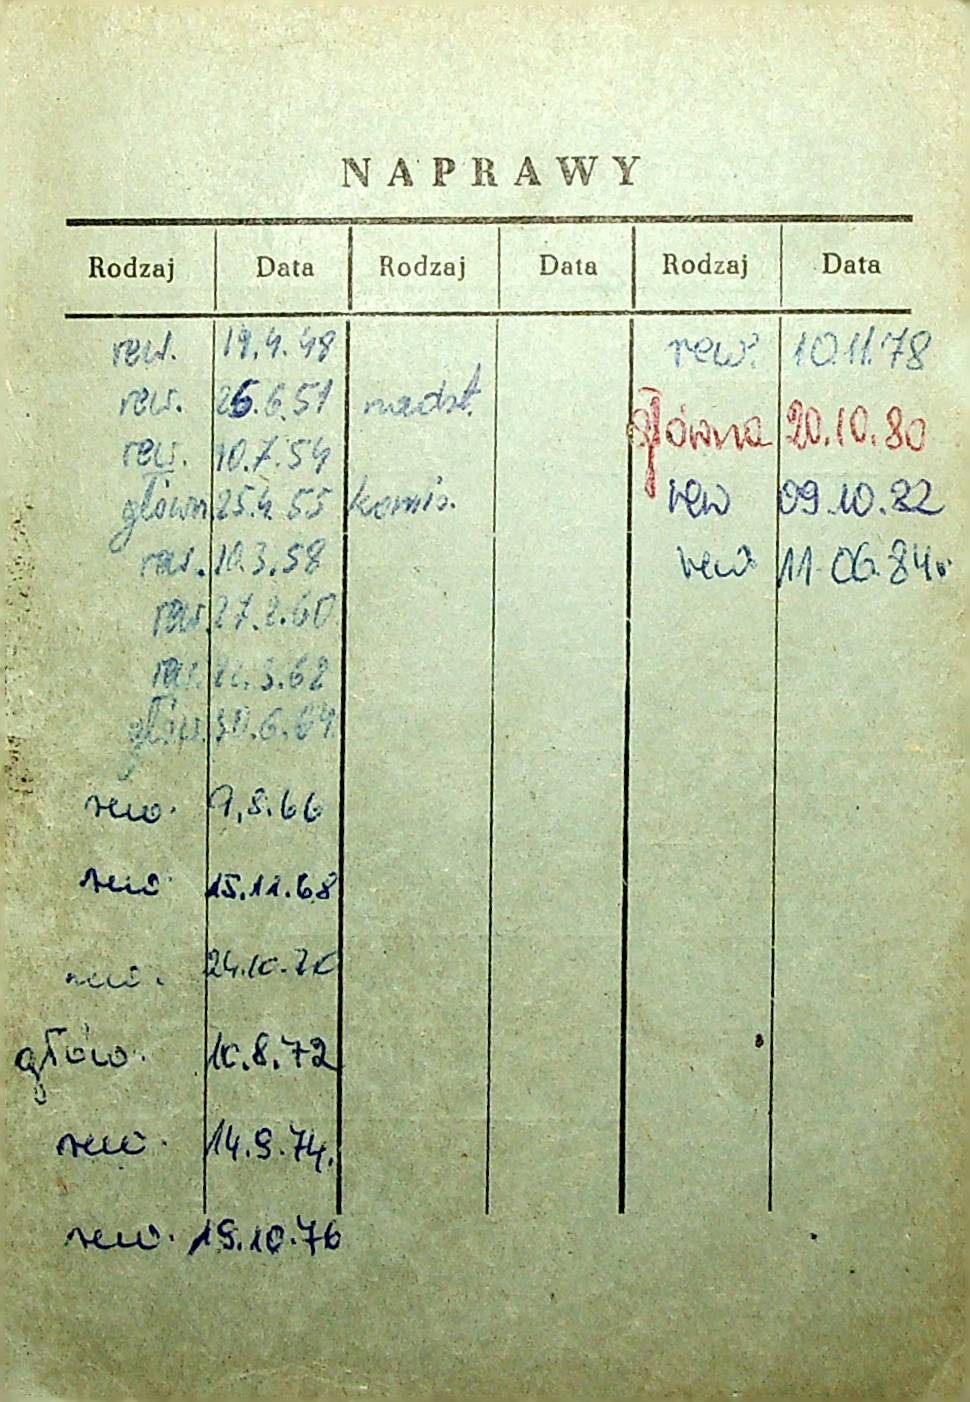 NAPRAWY
Rodzaj Data Rodzaj Data Rodzaj Data
rew. 19.4.48
rew. 26.6.51 nadst.
rew. 10.7.54
główn. 25.4.55 komis.
rew. 10.3.58
rew. 27.2.60
rew. 3.62
głów. 30.6.64
rew. 9,8.66
rew. 15.11.68
rew. 24.10.70
głów. 10.8.72
rew. 14.9.74.
rew. 19.10.76
rew. 10.11.78
główna 20.10.80
rew 09.10.82
rew. 11.06.84r.